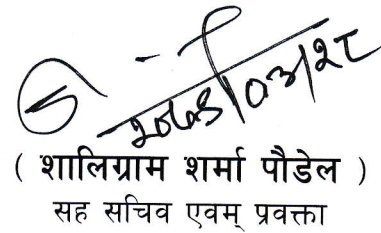 २०७९/०३/२८
( शालिग्राम शर्मा पौडेल )
सह सचिव एवम् प्रवक्ता